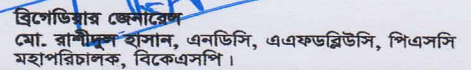 ব্রিগেডিয়ার জেনারেল
মো. রাশীদুল হাসান, এনডিসি, এএফডব্লিউসি, পিএসসি
মহাপরিচালক, বিকেএসপি।